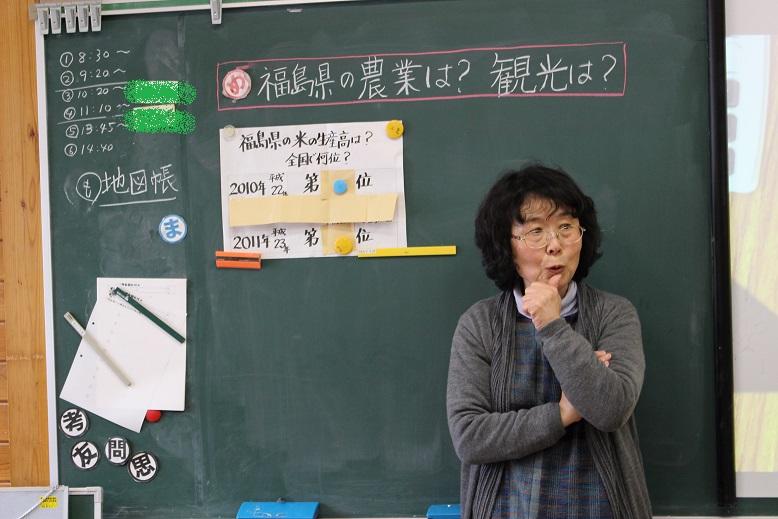 ① 8:30～
② 9:20～
③ 10:20～
④ 11:10～
⑤ 13:45～
⑥ 14:40
も 地図帳
ま
め 福島県の農業は? 観光は?
福島県の米の生産高は?
全国で何位?
2010年 平成22年 第 位
2011年 平成23年 第 位
考
友
問
思